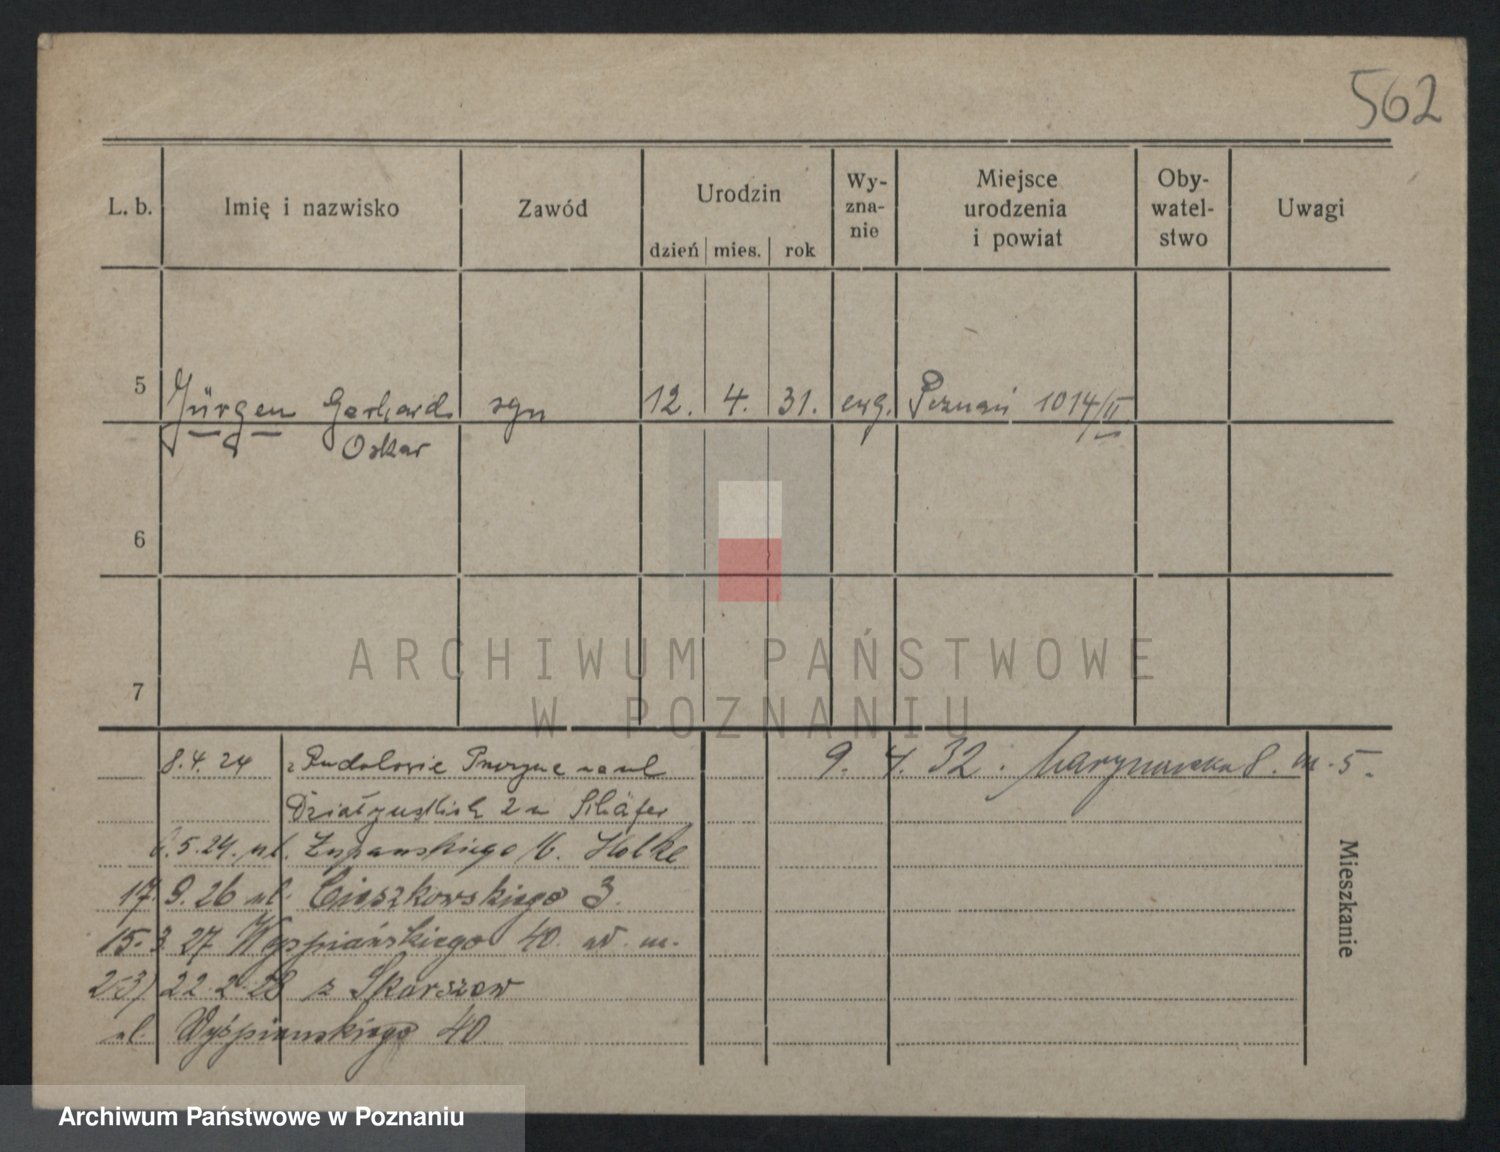 562
L. b. Imię i nazwisko Zawód Urodzin Wy- Miejsce Oby- Uwagi
zna- urodzenia watel-
nie i powiat stwo
dzień mies. rok
5 Jürgen Gerhard syn 12. 4. 31. ewg. Poznań 1014/II
Oskar
6
7
ARCHIWUM PAŃSTWOWE
W POZNANIU
8.4.24 z ul
9. 4. 32. Marynarska 8. m. 5.
Działyńskich 2 u Schäfer
6.5.24. ul. Żupańskiego Holke
17. 9. 26 ul. Cieszkowskiego 3.
15. 3. 27 Wyspiańskiego 40. m.
23) 22.2.28 z Skarszew
ul. Wyspiańskiego 40.
Mieszkanie
Archiwum Państwowe w Poznaniu